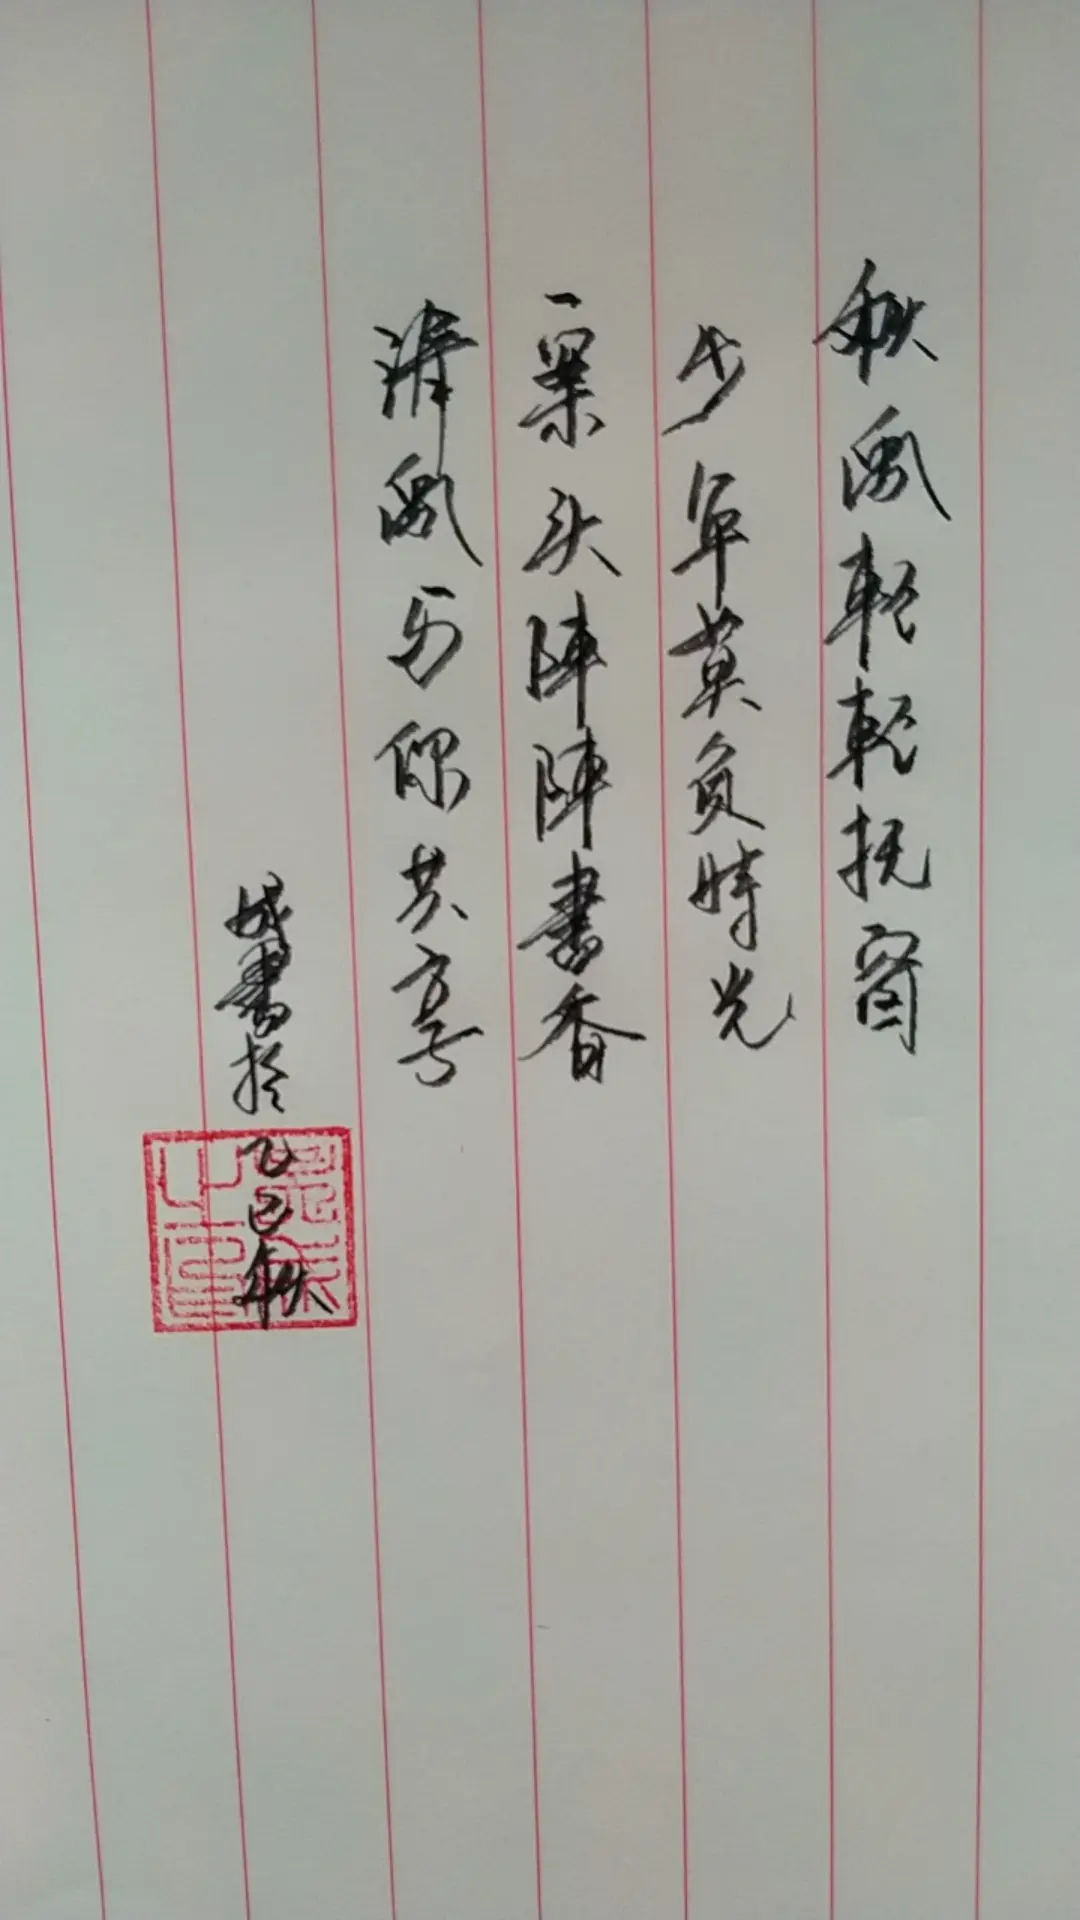 秋風輕輕抚窗
少年莫负時光
案头陣陣書香
清風与你共享
成書於乙巳秋